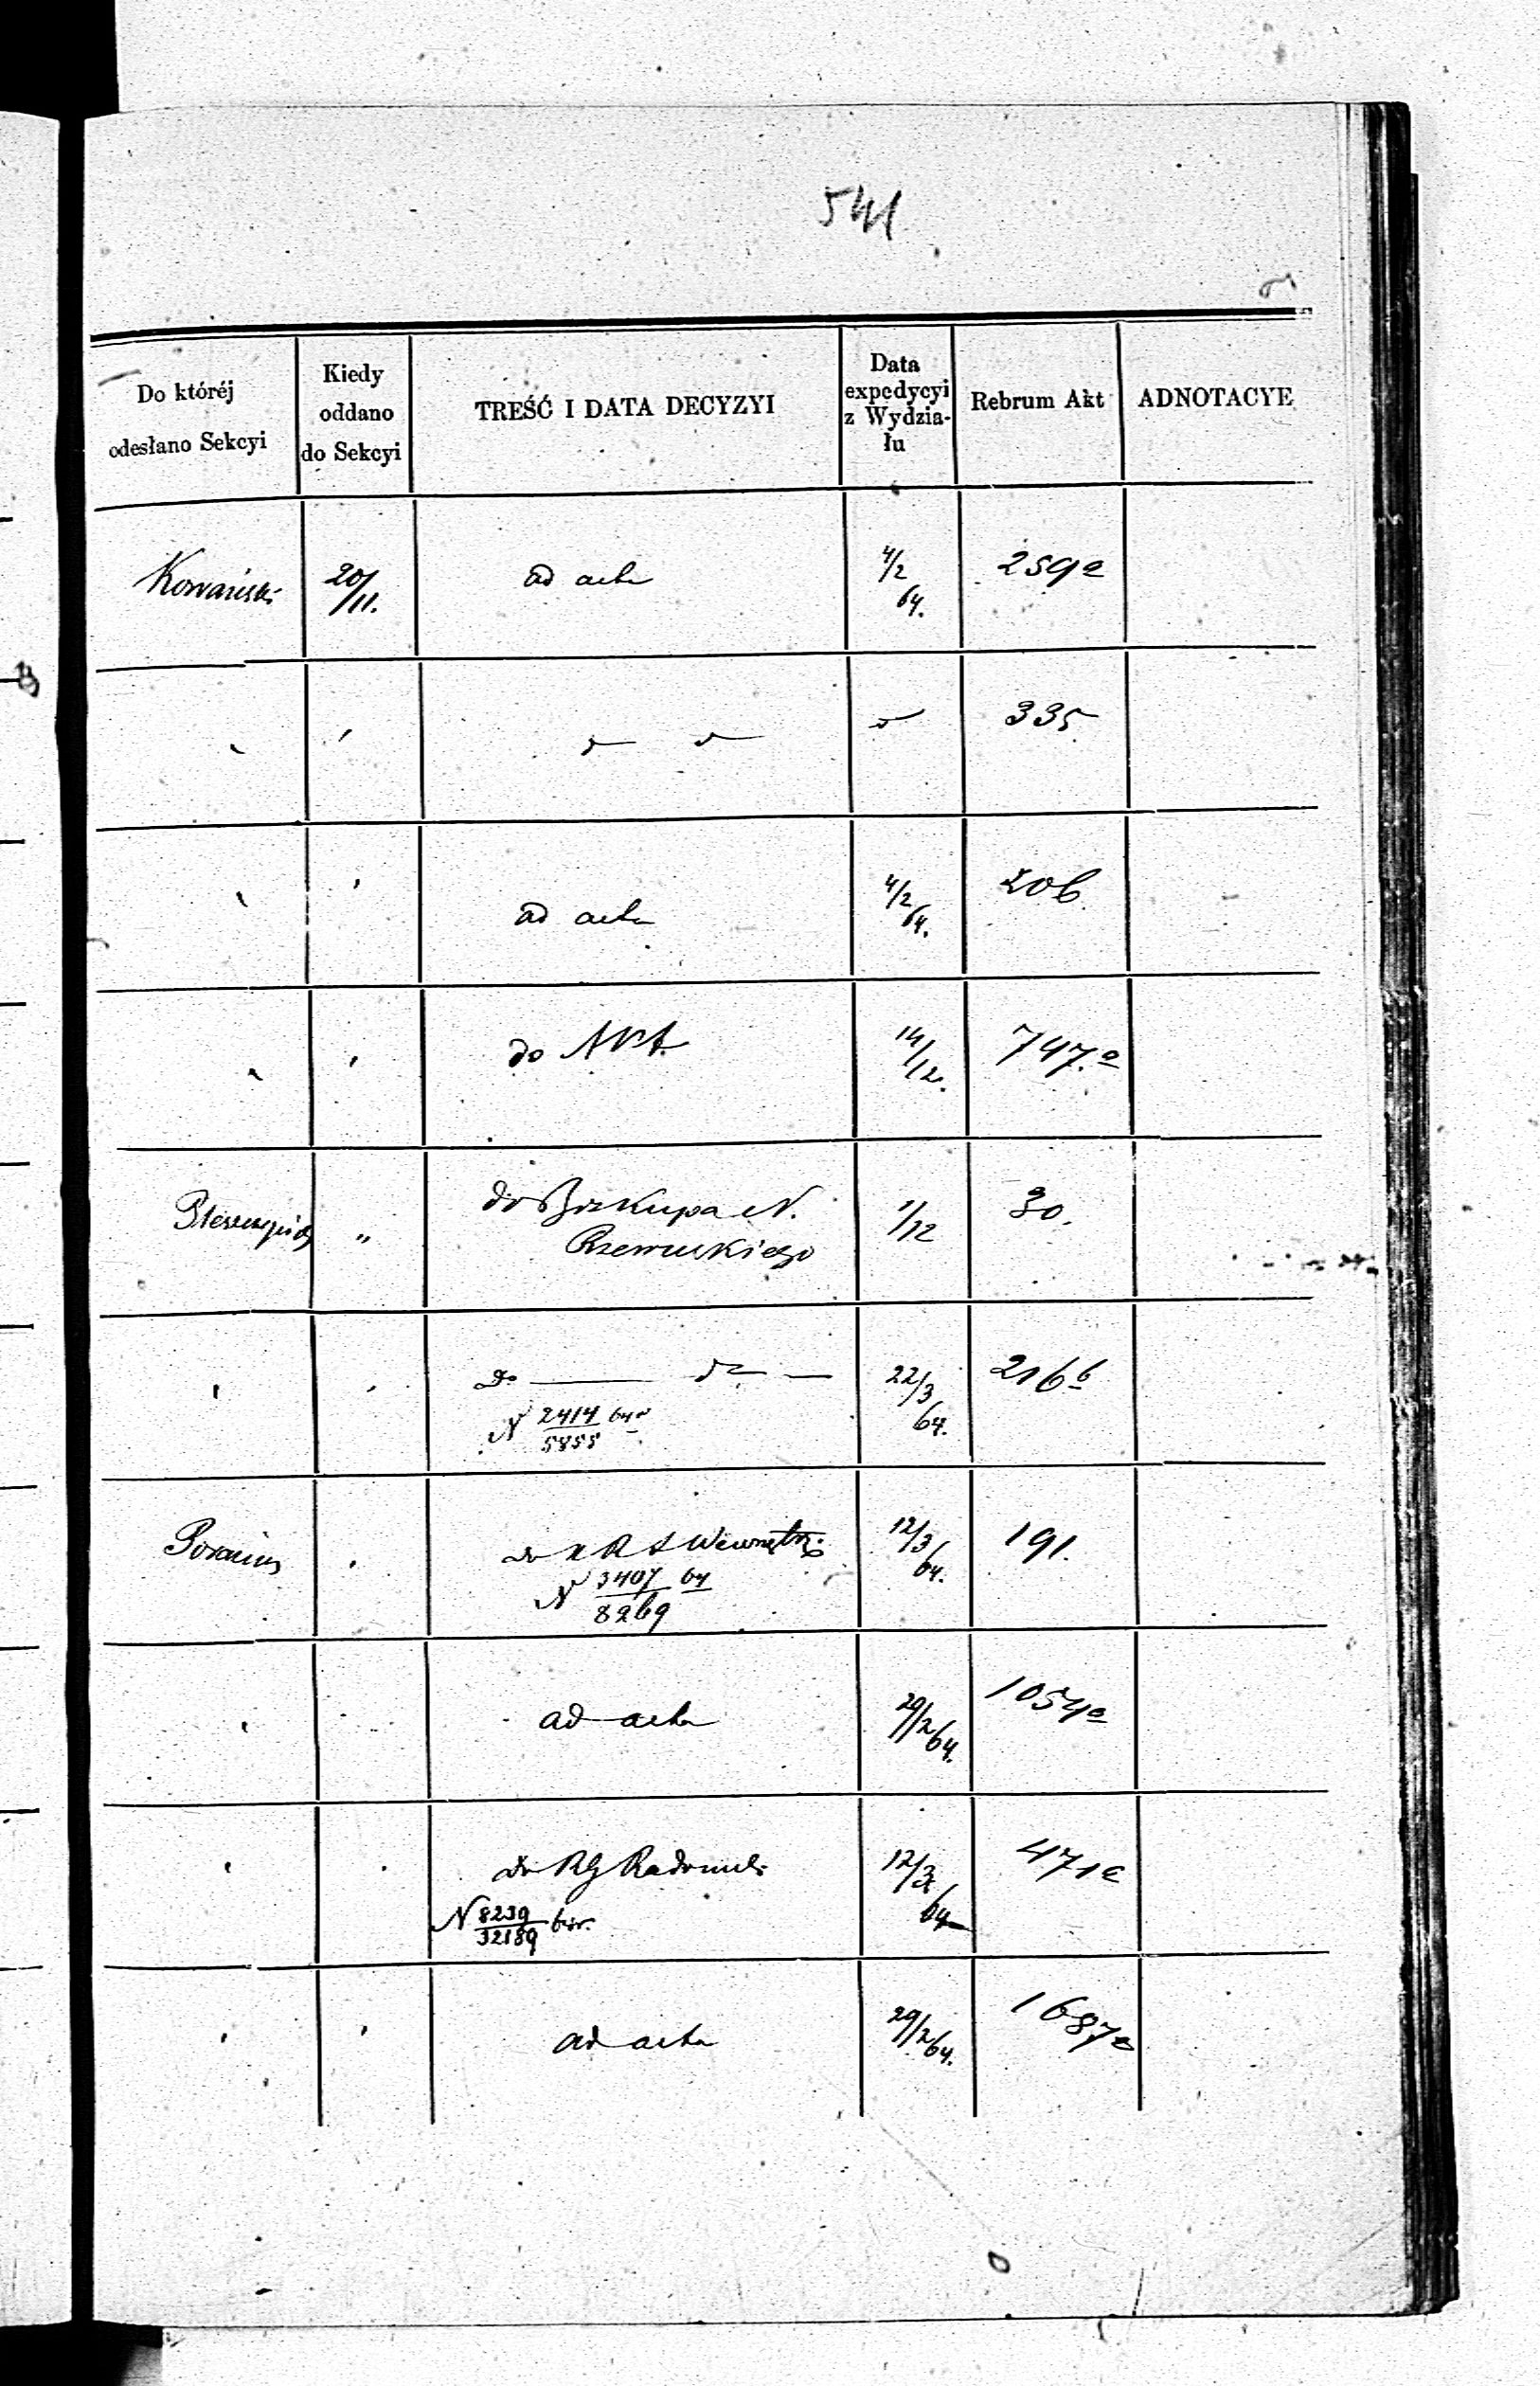 541
Do któréj
odesłano Sekcyi
Kiedy
oddano
do Sekcyi
TREŚĆ I DATA DECYZYI
Data
expedycyi
z Wydzia-
łu
Rebrum Akt
ADNOTACYE
20/11.
ad acta
4/2
64.
259a
"
"
335.
"
"
ad acta
4/2
64.
20b
"
"
do
14/12.
747.a
"
do Biskupa N.
Rzewuskiego
1/12
30.
"
"
do — do —
N 2414/5855 64r
22/3
64.
216b
"
do K R S Wewnętrz.
N 3407/8269 64
12/3
64.
191.
"
ad acta
29/2 64.
1054a
"
"
do RG Radomsk.
N 8239/32189 64r.
12/3
64
471a
"
"
ad acta
29/2 64.
1687a